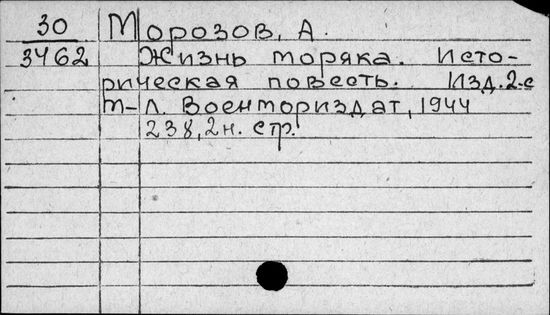 30 Морозов, А.
3462 Жизнь моряка. Исто-
рическая повесть. Изд. 2-е
М-Л. Военмориздат, 1944
238, 2 н. стр.